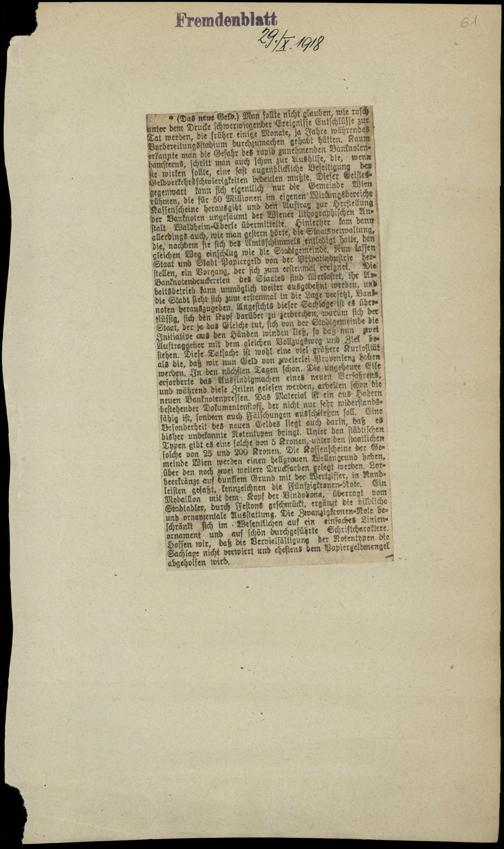 Fremdenblatt
61
29./X. 1918
* (Das neue Geld.) Man sollte nicht glauben, wie rasch
unter dem Drucke schwerwiegender Ereignisse Entschlüsse zur
Tat werden, die früher einige Monate, ja Jahre währendes
Vorbereitungsstadium durchzumachen gehabt hätten. Kaum
erkannte man die Gefahr des rapid zunehmenden Banknoten-
hamsterns, schritt man auch schon zur Aushilfe, die, wenn
sie wirken sollte, eine fast augenblickliche Beseitigung der
Geldverkehrsschwierigkeiten bedeuten mußte. Dieser Geistes-
gegenwart kann sich eigentlich nur die Gemeinde Wien
rühmen, die für 50 Millionen im eigenen Wirkungsbereiche
Kassenscheine herausgibt und den Auftrag zur Herstellung
der Banknoten ungesäumt der Wiener lithographischen An-
stalt Waldheim-Eberle übermittelte. Hinterher kam dann
allerdings auch, wie man gestern hörte, die Staatsverwaltung,
die, nachdem sie sich des Amtsschimmels entledigt hatte, den
gleichen Weg einschlug wie die Stadtgemeinde. Nun lassen
Staat und Stadt Papiergeld von der Privatindustrie her-
stellen, ein Vorgang, der sich zum erstenmal ereignet. Die
Banknotendruckereien des Staates sind überlastet, ihr Ar-
beitsbetrieb kann unmöglich weiter ausgedehnt werden, und
die Stadt sieht sich zum erstenmal in die Lage versetzt, Bank-
noten herauszugeben. Angesichts dieser Sachlage ist es über-
flüssig, sich den Kopf darüber zu zerbrechen, warum sich der
Staat, der ja das Gleiche tut, sich von der Stadtgemeinde die
Initiative aus den Händen winden ließ, so daß nun zwei
Auftraggeber mit dem gleichen Vollzugsweg und Ziel be-
stehen. Diese Tatsache ist wohl eine viel größere Kuriosität
als die, daß wir nun Geld von zweierlei Provenienz haben
werden. In den nächsten Tagen schon. Die ungeheure Eile
erforderte das Ausfindigmachen eines neuen Verfahrens,
und während diese Zeilen gelesen werden, arbeiten schon die
neuen Banknotenpressen. Das Material ist ein aus Hadern
bestehender Dokumentenstoff, der nicht nur sehr widerstands-
fähig ist, sondern auch Fälschungen ausschließen soll. Eine
Besonderheit des neuen Geldes liegt auch darin, daß es
bisher unbekannte Notentypen bringt. Unter den städtischen
Typen gibt es eine solche von 5 Kronen, unter den staatlichen
solche von 25 und 200 Kronen. Die Kassenscheine der Ge-
meinde Wien werden einen hellgrauen Wellengrund haben,
über den noch zwei weitere Druckfarben gelegt werden. Lor-
beerkränze auf dunklem Grund mit der Wertziffer, in Rand-
leisten gefaßt, kennzeichnen die Fünfzigkronen-Note. Ein
Medaillon mit dem Kopf der Vindobona, überragt vom
Stadtadler, durch Festons geschmückt, ergänzt die bildliche
und ornamentale Ausstattung. Die Zwanzigkronen-Note be-
schränkt sich im Wesentlichen auf ein einfaches Linien-
ornament und auf schön durchgeführte Schriftcharaktere.
Hoffen wir, daß die Vervielfältigung der Notentypen die
Sachlage nicht verwirrt und ehestens dem Papiergeldmangel
abgeholfen wird.